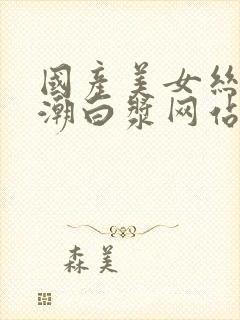 國產美女絲
潮白漿网佔
森美